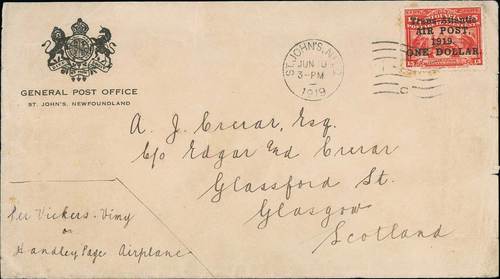 GENERAL POST OFFICE
ST. JOHN'S, NEWFOUNDLAND
ST. JOHN'S, N
JUN
3-PM
1919
Trans-Atlantic
AIR POST,
1919.
ONE DOLLAR.
15 15
A. J. Crerar, Esq.
C/o Edgar Crerar
Glassford St.
Glasgow
Scotland
Per Vickers-Vimy
or
Handley Page Airplane